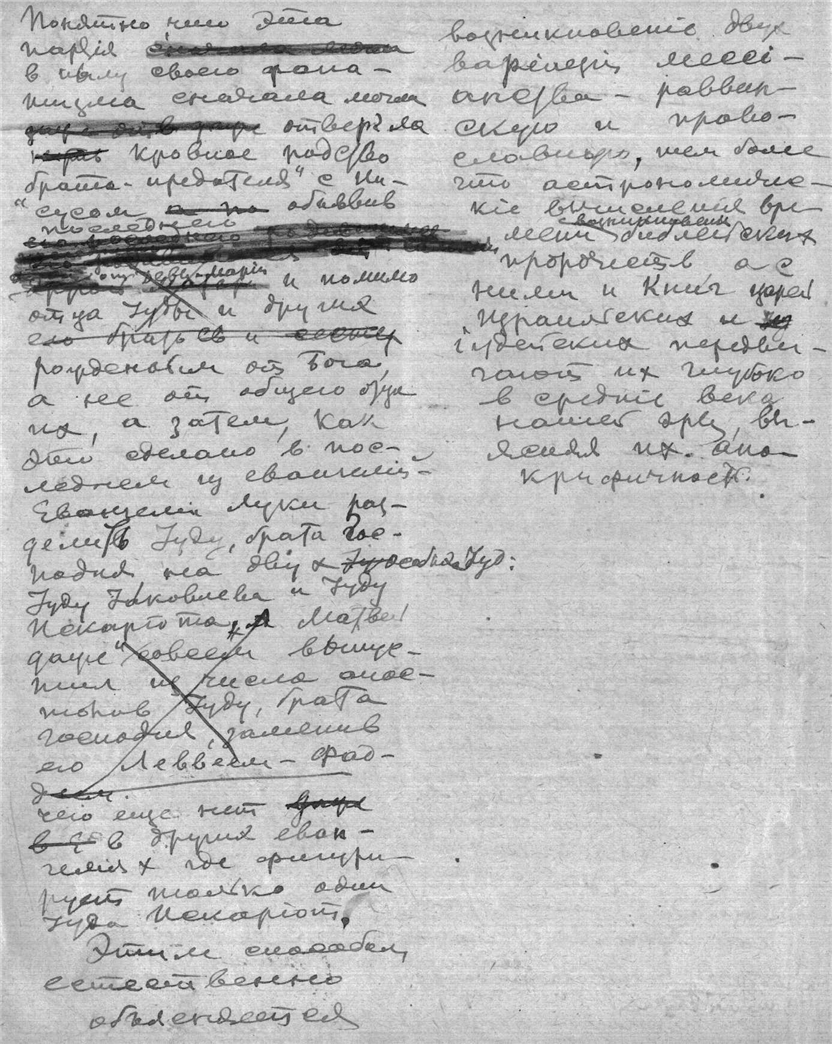 Понятно, что эта
партія
в пылу своего фана-
тизма сначала могла
отвергла
кровное родство
брата-предателя" с Іи-
"сусом объявив
последнего
от девы-Маріи и помимо
отца Іуды и других
его братьев и сестер
рожденным от Бога,
а не от общего отца
их, а затем, как
это сделано в пос-
леднем из евангелій-
Евангеліи Луки раз-
делить Іуду, брата гос-
подня на двух Іуд:
Іуду Іаковлева и Іуду
Искаріота, а Матвей
даже совсем выпус-
тил из числа апос-
толов Іуду, брата
господня, заменив
его Леввеем-Фад-
деем
чего еще нет
в других еван-
гелиях где фигури-
рует только один
Іуда Искаріот.
Этим способом
естественно
объясняется
возникновеніе двух
варіацій мессі-
анства - раввин-
скую и право-
славную, тем более
что астрономичес-
кіе вычисления вре-
мени возникновения библейских
пророчеств, а с
ними и Книг царей
Израильских и
Іудейских передви-
гают их глубоко
в средніе века
нашей эры, вы-
ясняя их апо-
крифичность.